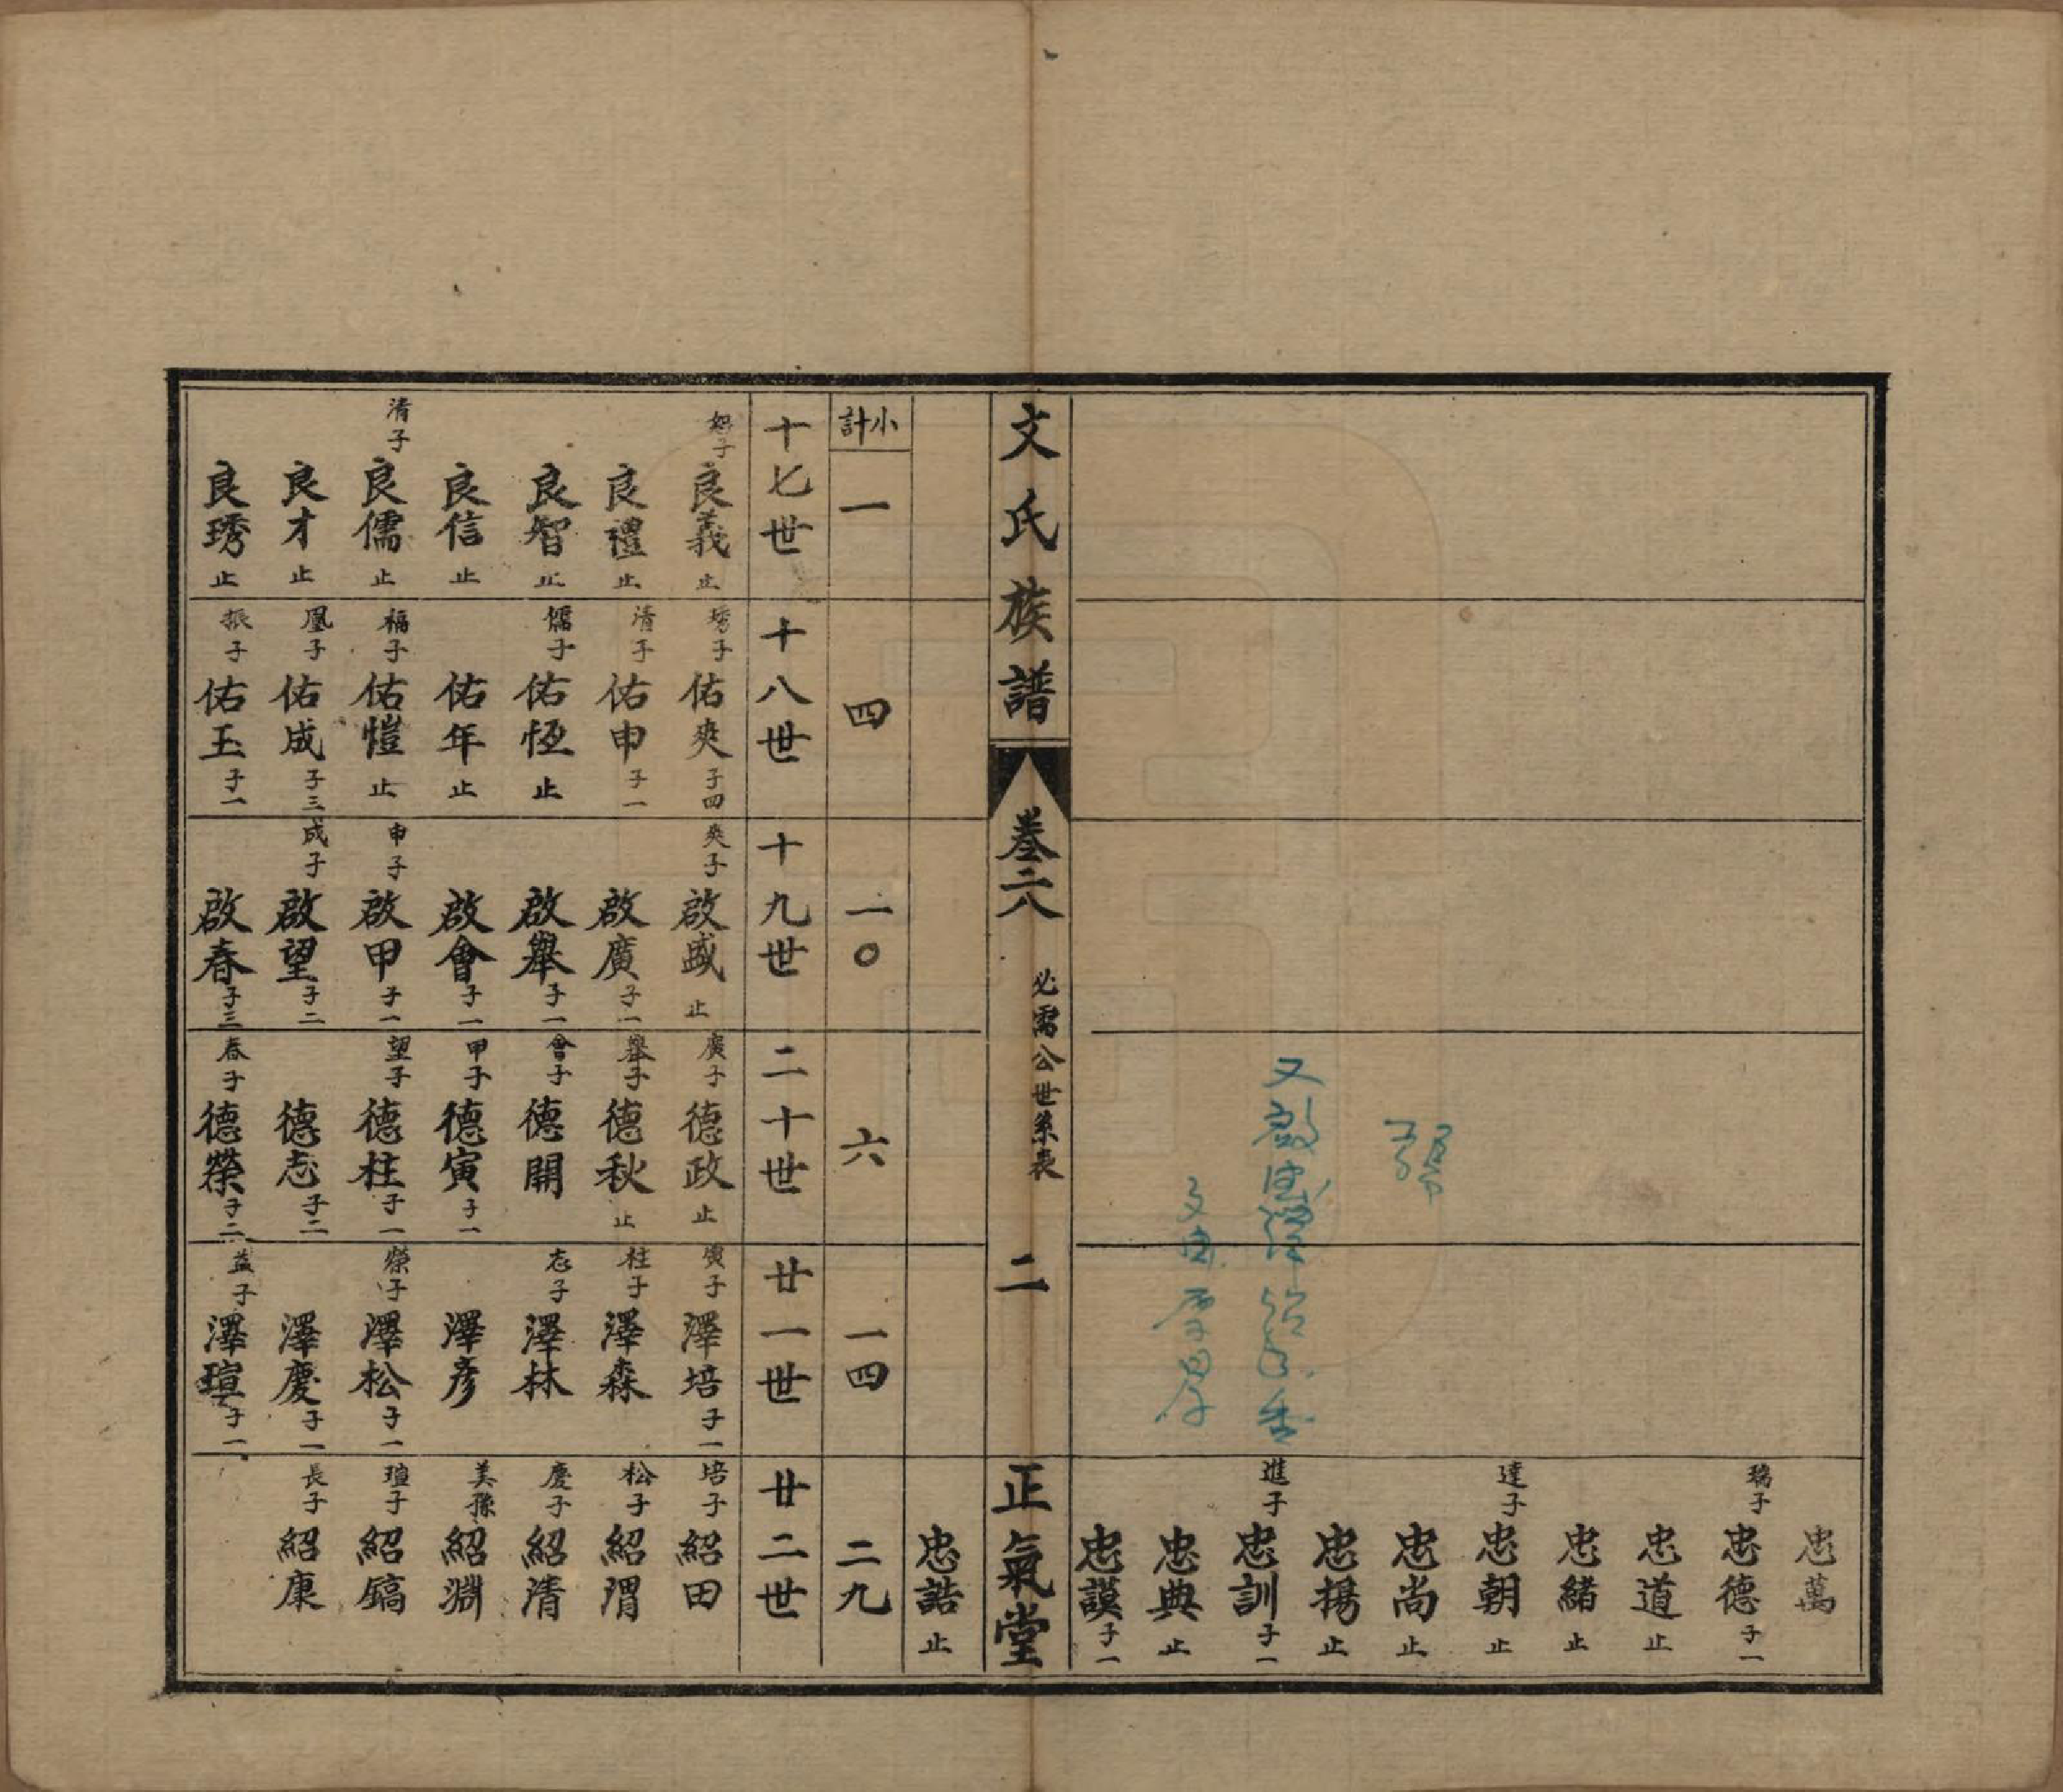 忠萬
瑞子 忠德 子一
忠道 止
忠緒 止
達子 忠朝 止
忠尚 止
忠揚 止
進子 忠訓 子一
忠典 止
忠謨 子一
文氏族譜
卷二八
必需公世系表
二
正氣堂
忠誥 止
小計
一
四
一〇
六
一四
二九
十七世
恕子 良義 止
良禮 止
良智 止
良信 止
清子 良儒 止
良才 止
良琇 止
十八世
琇子 佑爽 子四
清子 佑申 子一
儒子 佑恆 止
佑年 止
福子 佑愷 止
鳳子 佑成 子三
振子 佑玉 子一
十九世
爽子 啟盛 止
啟廣 子一
啟舉 子一
啟會 子一
申子 啟甲 子一
成子 啟望 子二
啟春 子三
二十世
廣子 德政 止
舉子 德秋 止
會子 德開
甲子 德寅 子一
望子 德柱 子一
德志 子二
春子 德榮 子二
廿一世
寅子 澤培 子一
柱子 澤森
志子 澤林
澤彥
榮子 澤松 子一
澤慶 子一
益子 澤瑄 子一
廿二世
培子 紹田
松子 紹渭
慶子 紹清
美豫 紹淵
瑄子 紹鎬
長子 紹康